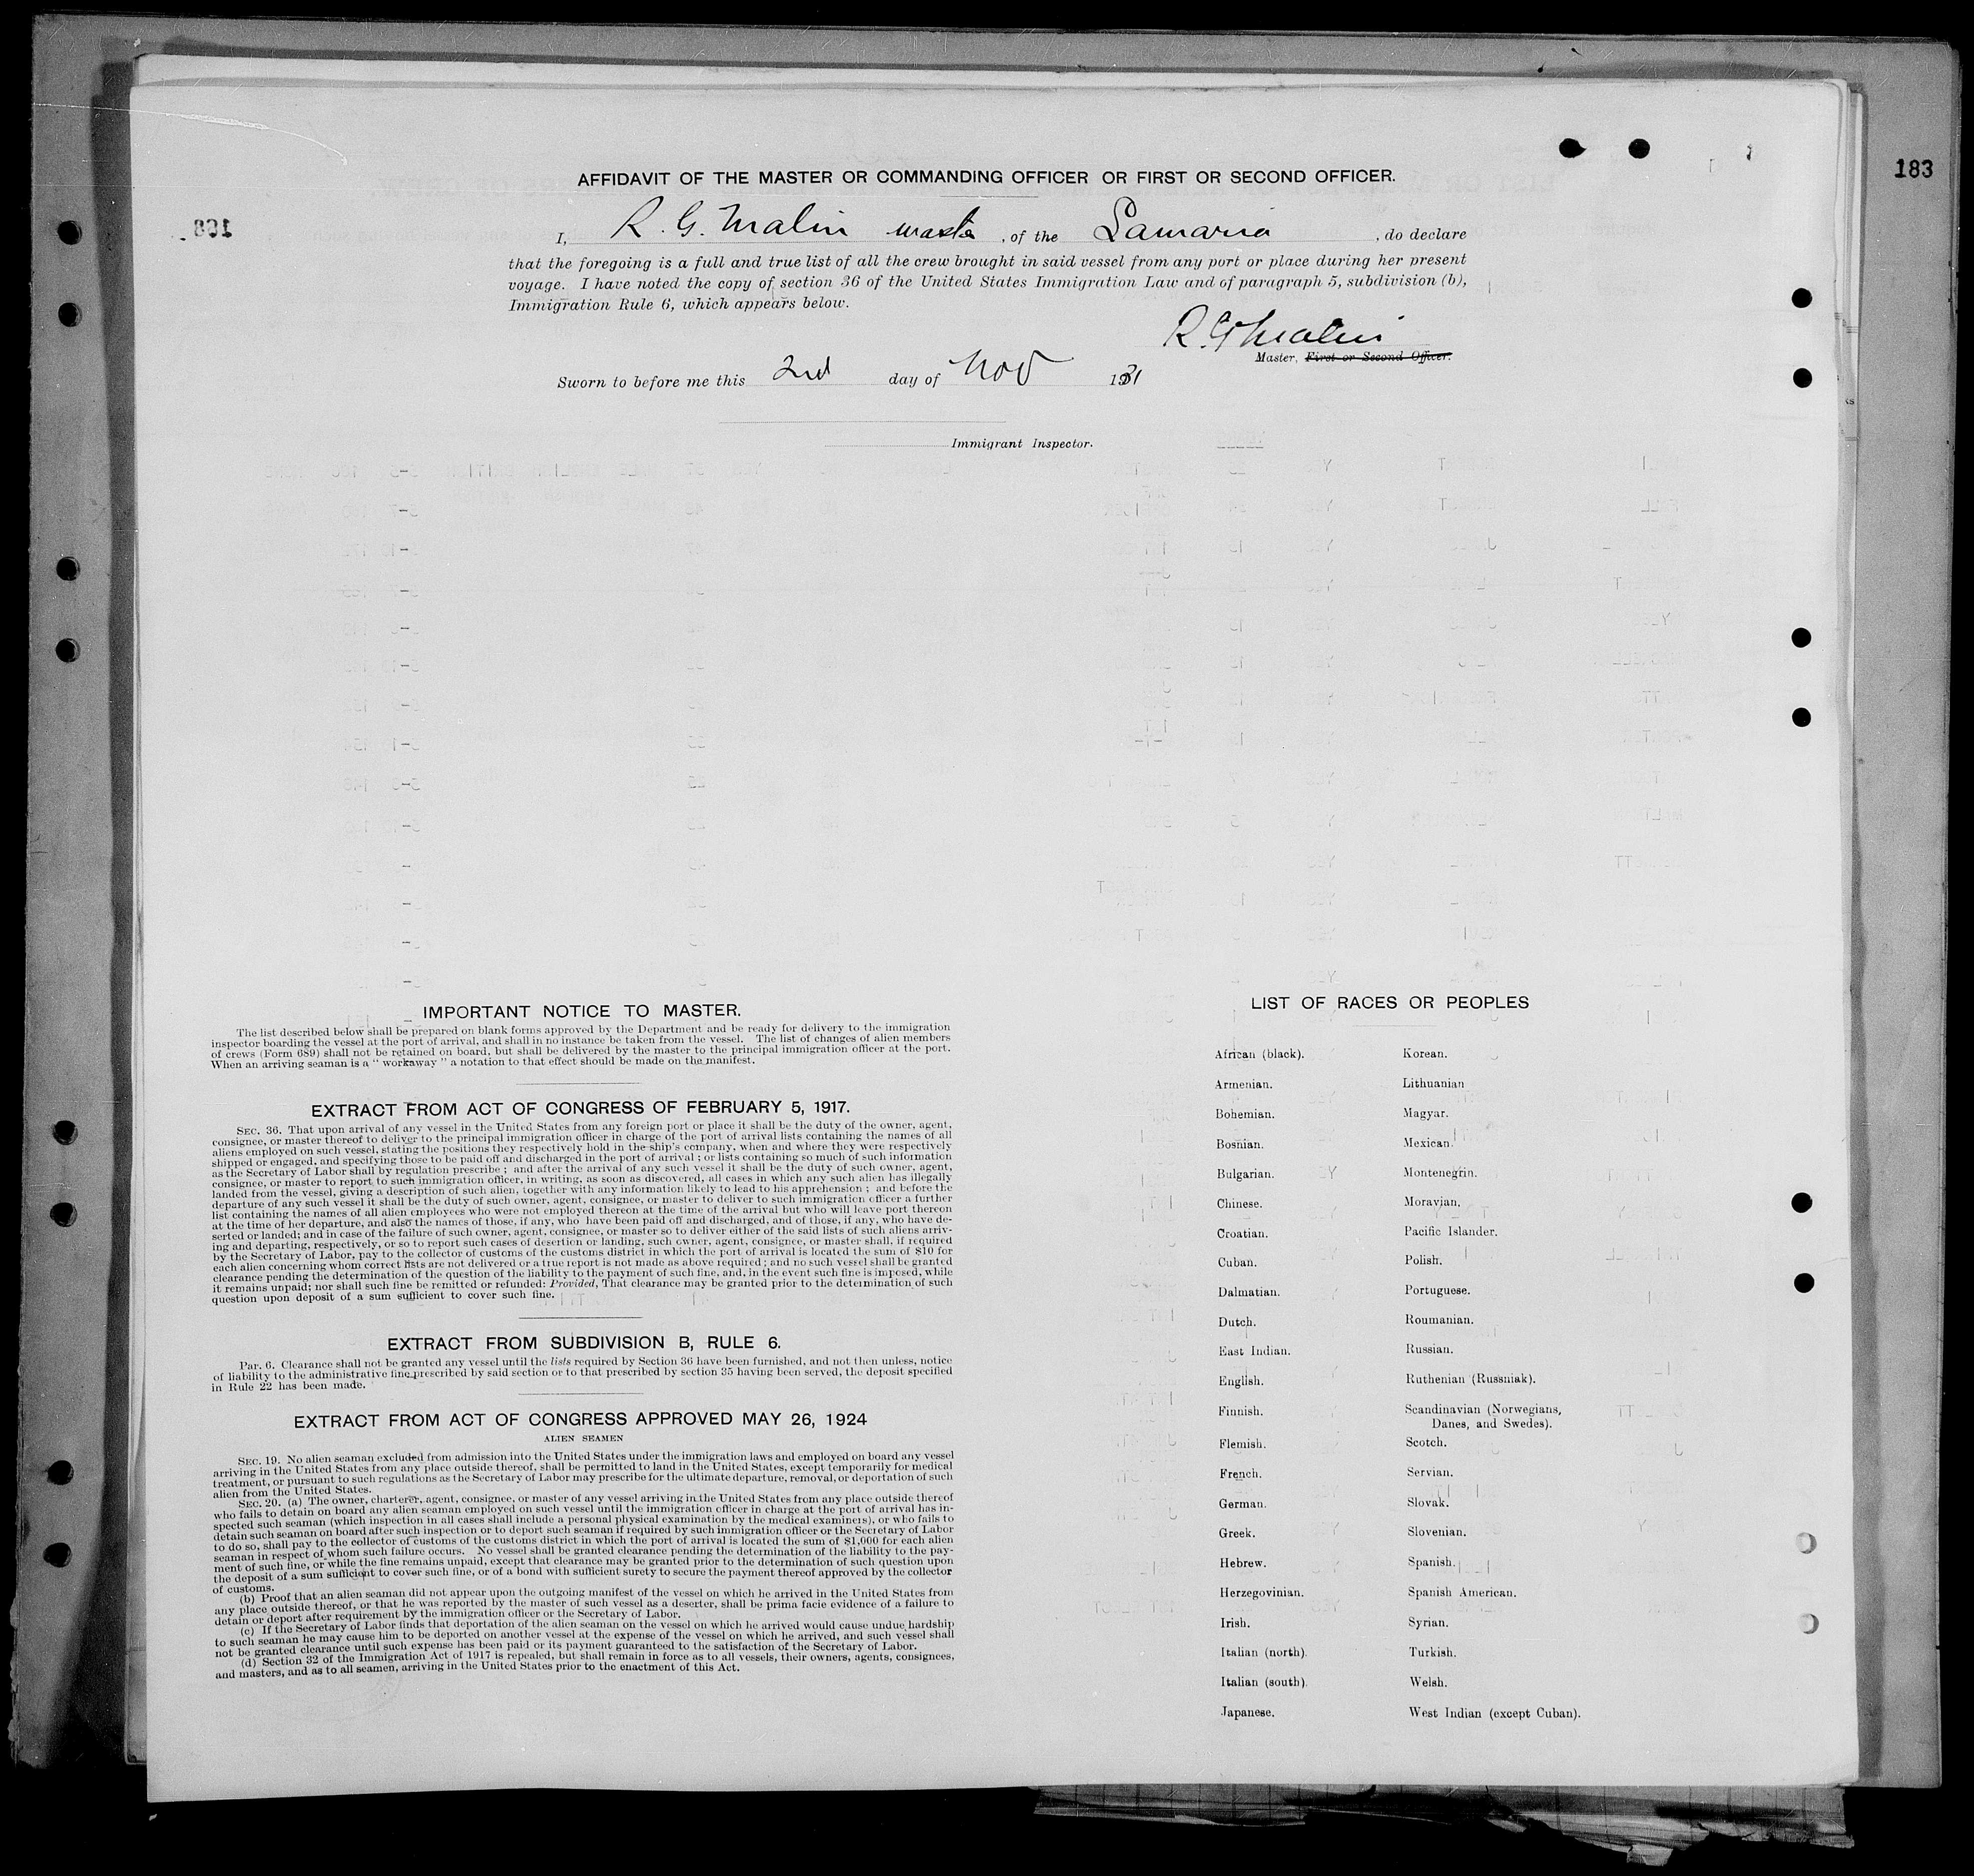 183
AFFIDAVIT OF THE MASTER OR COMMANDING OFFICER OR FIRST OR SECOND OFFICER.
I, R. G. Malin master, of the Samaria, do declare
that the foregoing is a full and true list of all the crew brought in said vessel from any port or place during her present
voyage. I have noted the copy of section 36 of the United States Immigration Law and of paragraph 5, subdivision (b),
Immigration Rule 6, which appears below.
R. G. Malin
Master, First or Second Officer.
Sworn to before me this 2nd day of Nov 1931
Immigrant Inspector.
IMPORTANT NOTICE TO MASTER.
The list described below shall be prepared on blank forms approved by the Department and be ready for delivery to the immigration
inspector boarding the vessel at the port of arrival, and shall in no instance be taken from the vessel. The list of changes of alien members
of crews (Form 689) shall not be retained on board, but shall be delivered by the master to the principal immigration officer at the port.
When an arriving seaman is a "workaway" a notation to that effect should be made on the manifest.
EXTRACT FROM ACT OF CONGRESS OF FEBRUARY 5, 1917.
SEC. 36. That upon arrival of any vessel in the United States from any foreign port or place it shall be the duty of the owner, agent,
consignee, or master thereof to deliver to the principal immigration officer in charge of the port of arrival lists containing the names of all
aliens employed on such vessel, stating the positions they respectively hold in the ship's company, when and where they were respectively
shipped or engaged, and specifying those to be paid off and discharged in the port of arrival; or lists containing so much of such information
as the Secretary of Labor shall by regulation prescribe; and after the arrival of any such vessel it shall be the duty of such owner, agent,
consignee, or master to report to such immigration officer, in writing, as soon as discovered, all cases in which any such alien has illegally
landed from the vessel, giving a description of such alien, together with any information likely to lead to his apprehension; and before the
departure of any such vessel it shall be the duty of such owner, agent, consignee, or master to deliver to such immigration officer a further
list containing the names of all alien employees who were not employed thereon at the time of the arrival but who will leave port thereon
at the time of her departure, and also the names of those, if any, who have been paid off and discharged, and of those, if any, who have de-
serted or landed; and in case of the failure of such owner, agent, consignee, or master so to deliver either of the said lists of such aliens arriv-
ing and departing, respectively, or so to report such cases of desertion or landing, such owner, agent, consignee, or master shall, if required
by the Secretary of Labor, pay to the collector of customs of the customs district in which the port of arrival is located the sum of $10 for
each alien concerning whom correct lists are not delivered or a true report is not made as above required; and no such vessel shall be granted
clearance pending the determination of the question of the liability to the payment of such fine, and, in the event such fine is imposed, while
it remains unpaid; nor shall such fine be remitted or refunded: Provided, That clearance may be granted prior to the determination of such
question upon deposit of a sum sufficient to cover such fine.
EXTRACT FROM SUBDIVISION B, RULE 6.
Par. 6. Clearance shall not be granted any vessel until the lists required by Section 36 have been furnished, and not then unless, notice
of liability to the administrative fine prescribed by said section or to that prescribed by section 35 having been served, the deposit specified
in Rule 22 has been made.
EXTRACT FROM ACT OF CONGRESS APPROVED MAY 26, 1924
ALIEN SEAMEN
SEC. 19. No alien seaman excluded from admission into the United States under the immigration laws and employed on board any vessel
arriving in the United States from any place outside thereof, shall be permitted to land in the United States, except temporarily for medical
treatment, or pursuant to such regulations as the Secretary of Labor may prescribe for the ultimate departure, removal, or deportation of such
alien from the United States.
SEC. 20. (a) The owner, charterer, agent, consignee, or master of any vessel arriving in the United States from any place outside thereof
who fails to detain on board any alien seaman employed on such vessel until the immigration officer in charge at the port of arrival has in-
spected such seaman (which inspection in all cases shall include a personal physical examination by the medical examiners), or who fails to
detain such seaman on board after such inspection or to deport such seaman if required by such immigration officer or the Secretary of Labor
to do so, shall pay to the collector of customs of the customs district in which the port of arrival is located the sum of $1,000 for each alien
seaman in respect of whom such failure occurs. No vessel shall be granted clearance pending the determination of the liability to the pay-
ment of such fine, or while the fine remains unpaid, except that clearance may be granted prior to the determination of such question upon
the deposit of a sum sufficient to cover such fine, or of a bond with sufficient surety to secure the payment thereof approved by the collector
of customs.
(b) Proof that an alien seaman did not appear upon the outgoing manifest of the vessel on which he arrived in the United States from
any place outside thereof, or that he was reported by the master of such vessel as a deserter, shall be prima facie evidence of a failure to
detain or deport after requirement by the immigration officer or the Secretary of Labor.
(c) If the Secretary of Labor finds that deportation of the alien seaman on the vessel on which he arrived would cause undue hardship
to such seaman he may cause him to be deported on another vessel at the expense of the vessel on which he arrived, and such vessel shall
not be granted clearance until such expense has been paid or its payment guaranteed to the satisfaction of the Secretary of Labor.
(d) Section 32 of the Immigration Act of 1917 is repealed, but shall remain in force as to all vessels, their owners, agents, consignees,
and masters, and as to all seamen, arriving in the United States prior to the enactment of this Act.
LIST OF RACES OR PEOPLES
African (black).
Armenian.
Bohemian.
Bosnian.
Bulgarian.
Chinese.
Croatian.
Cuban.
Dalmatian.
Dutch.
East Indian.
English.
Finnish.
Flemish.
French.
German.
Greek.
Hebrew.
Herzegovinian.
Irish.
Italian (north).
Italian (south).
Japanese.
Korean.
Lithuanian
Magyar.
Mexican.
Montenegrin.
Moravian.
Pacific Islander.
Polish.
Portuguese.
Roumanian.
Russian.
Ruthenian (Russniak).
Scandinavian (Norwegians,
Danes, and Swedes).
Scotch.
Servian.
Slovak.
Slovenian.
Spanish.
Spanish American.
Syrian.
Turkish.
Welsh.
West Indian (except Cuban).